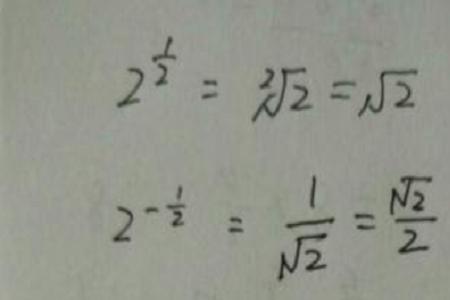 2^{\frac{1}{2}} = \sqrt[2]{2} = \sqrt{2}
2^{-\frac{1}{2}} = \frac{1}{\sqrt{2}} = \frac{\sqrt{2}}{2}